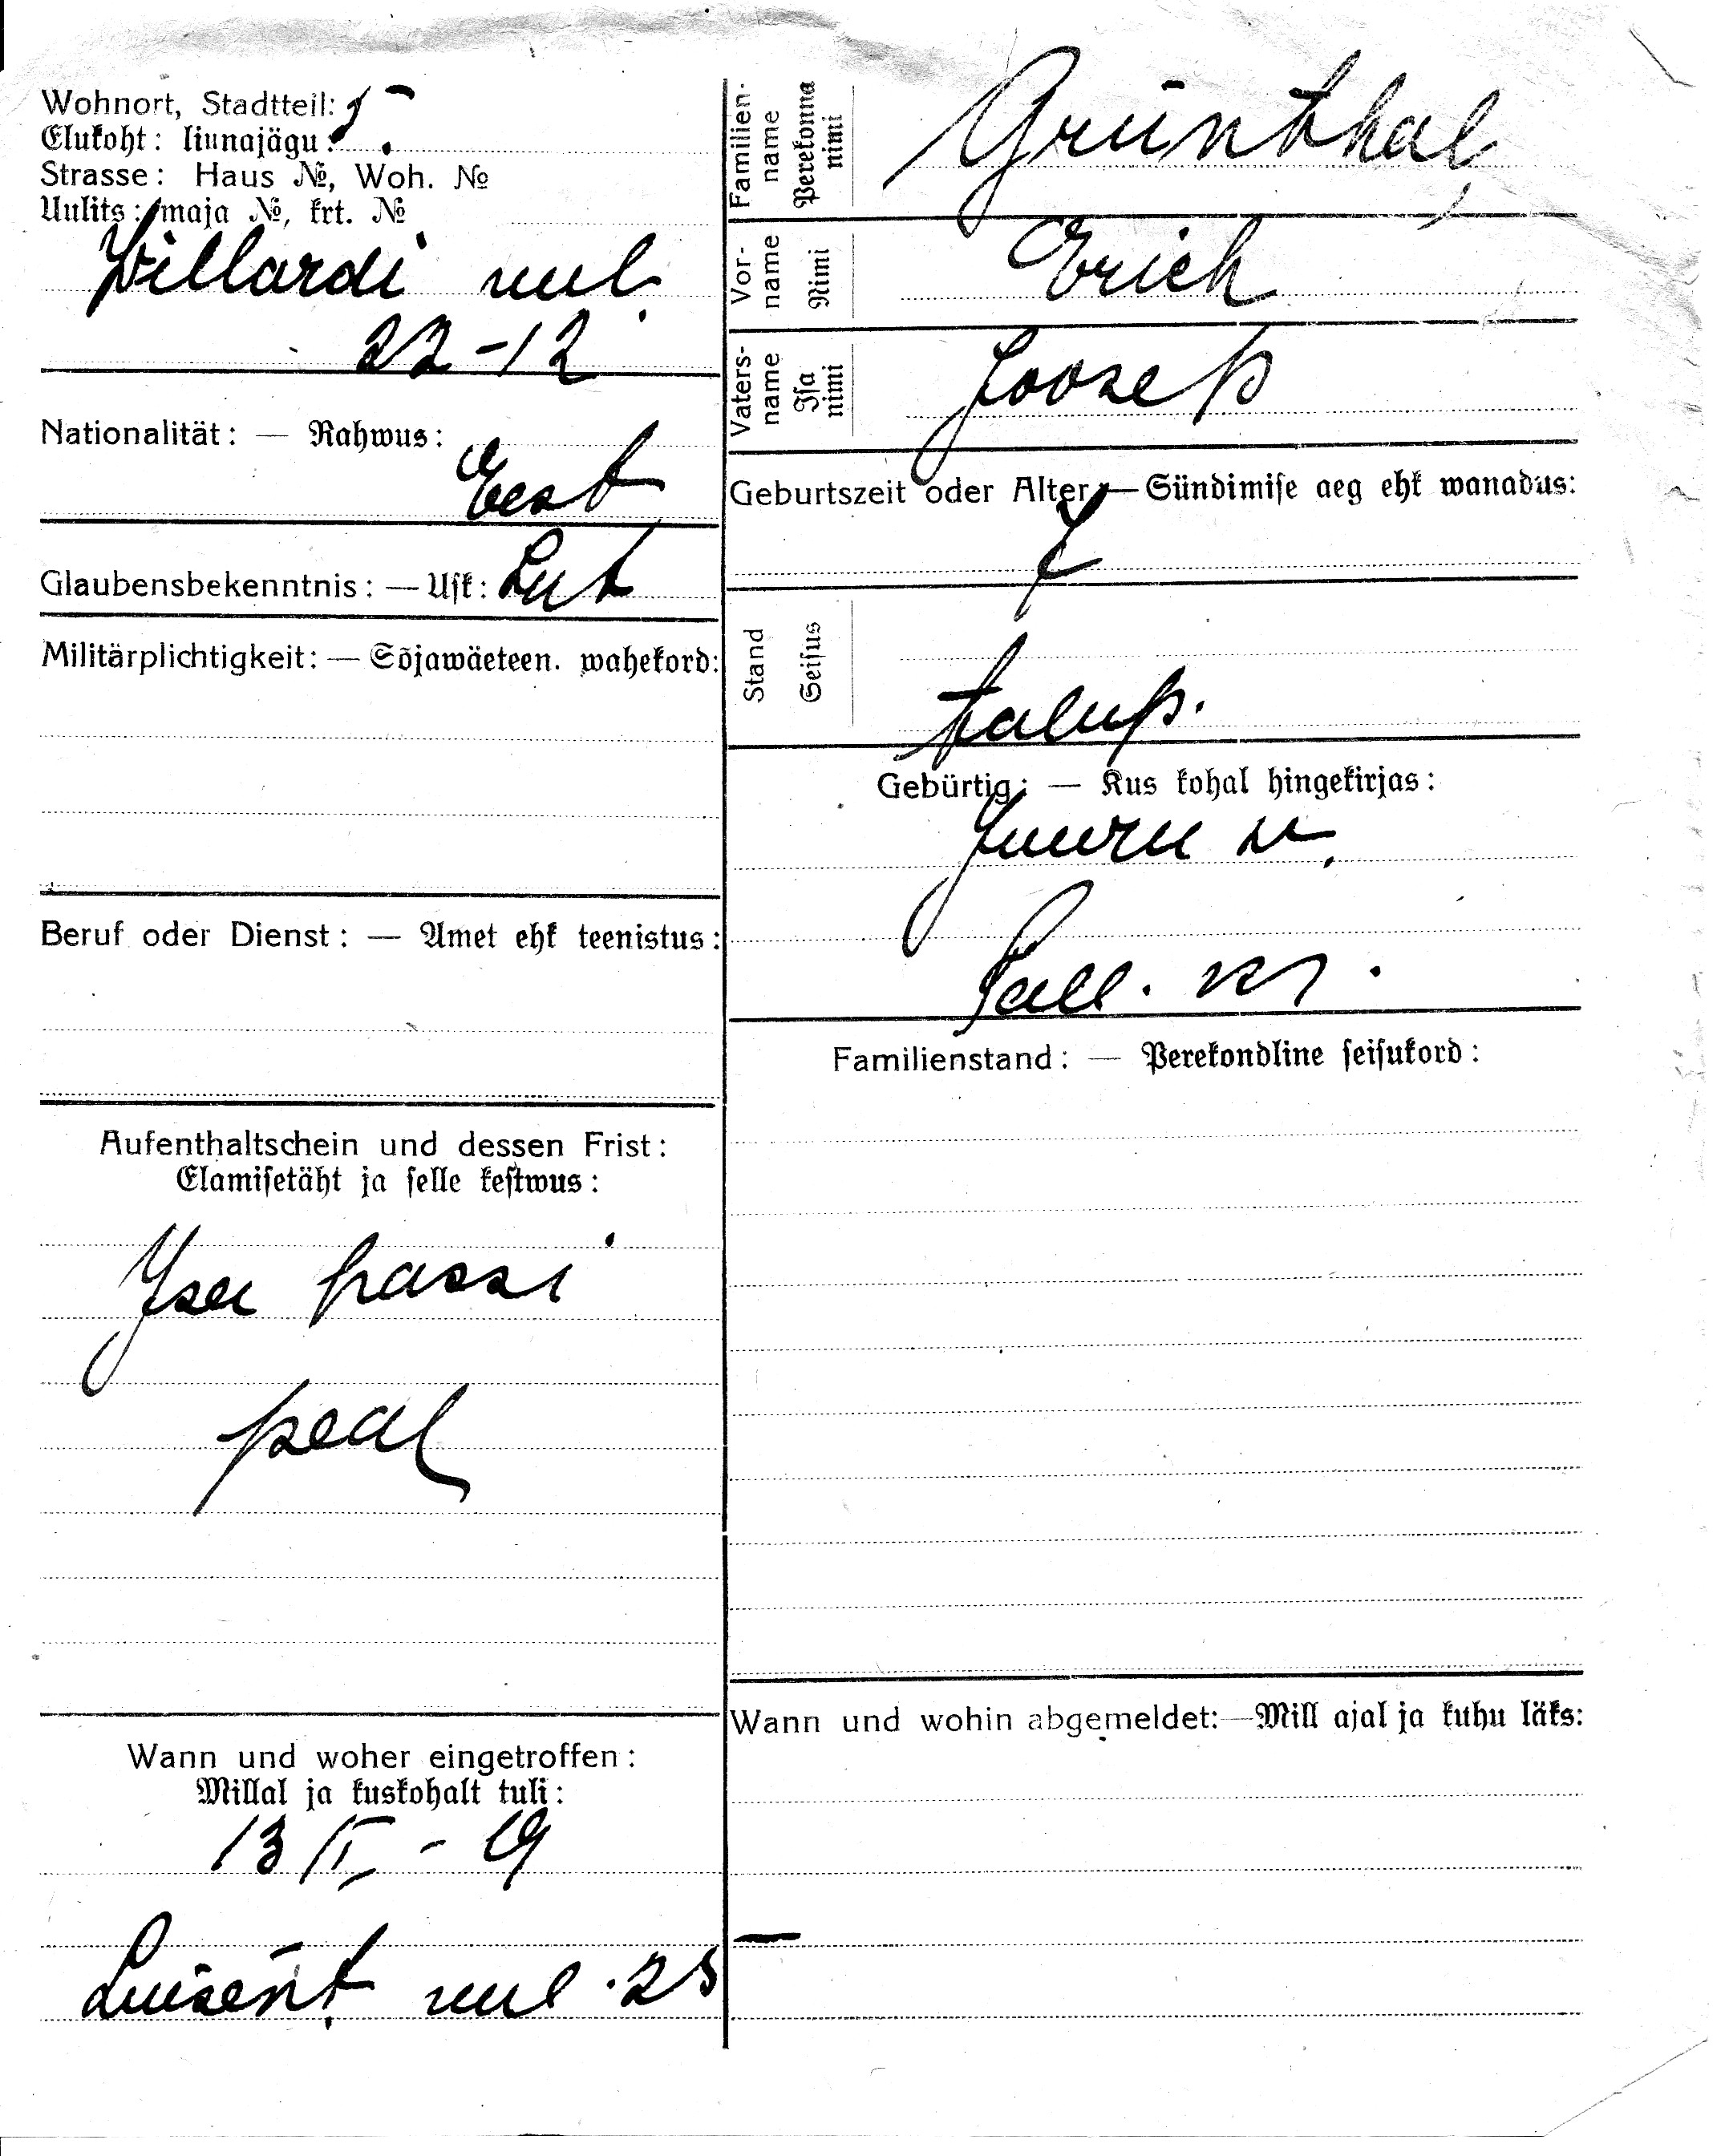 Wohnort, Stadtteil: 5.
Elukoht: linnajägu:
Strasse: Haus №, Woh. №
Uulits: maja №, krt. №
Willardi uul.
22-12
Nationalität: — Rahwus:
Eest
Glaubensbekenntnis: — Usk: Lut
Militärplichtigkeit: — Sõjawäeteen. wahekord:
Beruf oder Dienst: — Amet ehk teenistus:
Aufenthaltschein und dessen Frist:
Elamisetäht ja selle kestwus:
Isa passi
peal
Wann und woher eingetroffen:
Millal ja kuskohalt tuli:
13 II - 19
uul. 25
Familien-
name
Perekonna
nimi
Grünthal
Vor-
name
Nimi
Erich
Vaters-
name
Isa
nimi
Joosep
Geburtszeit oder Alter: — Sündimise aeg ehk wanadus:
7
Stand
Seisus
talup.
Gebürtig: — Kus kohal hingekirjas:
Juuru w.
Tall. kr.
Familienstand: — Perekondline seisukord:
Wann und wohin abgemeldet: — Mill ajal ja kuhu läks:
—